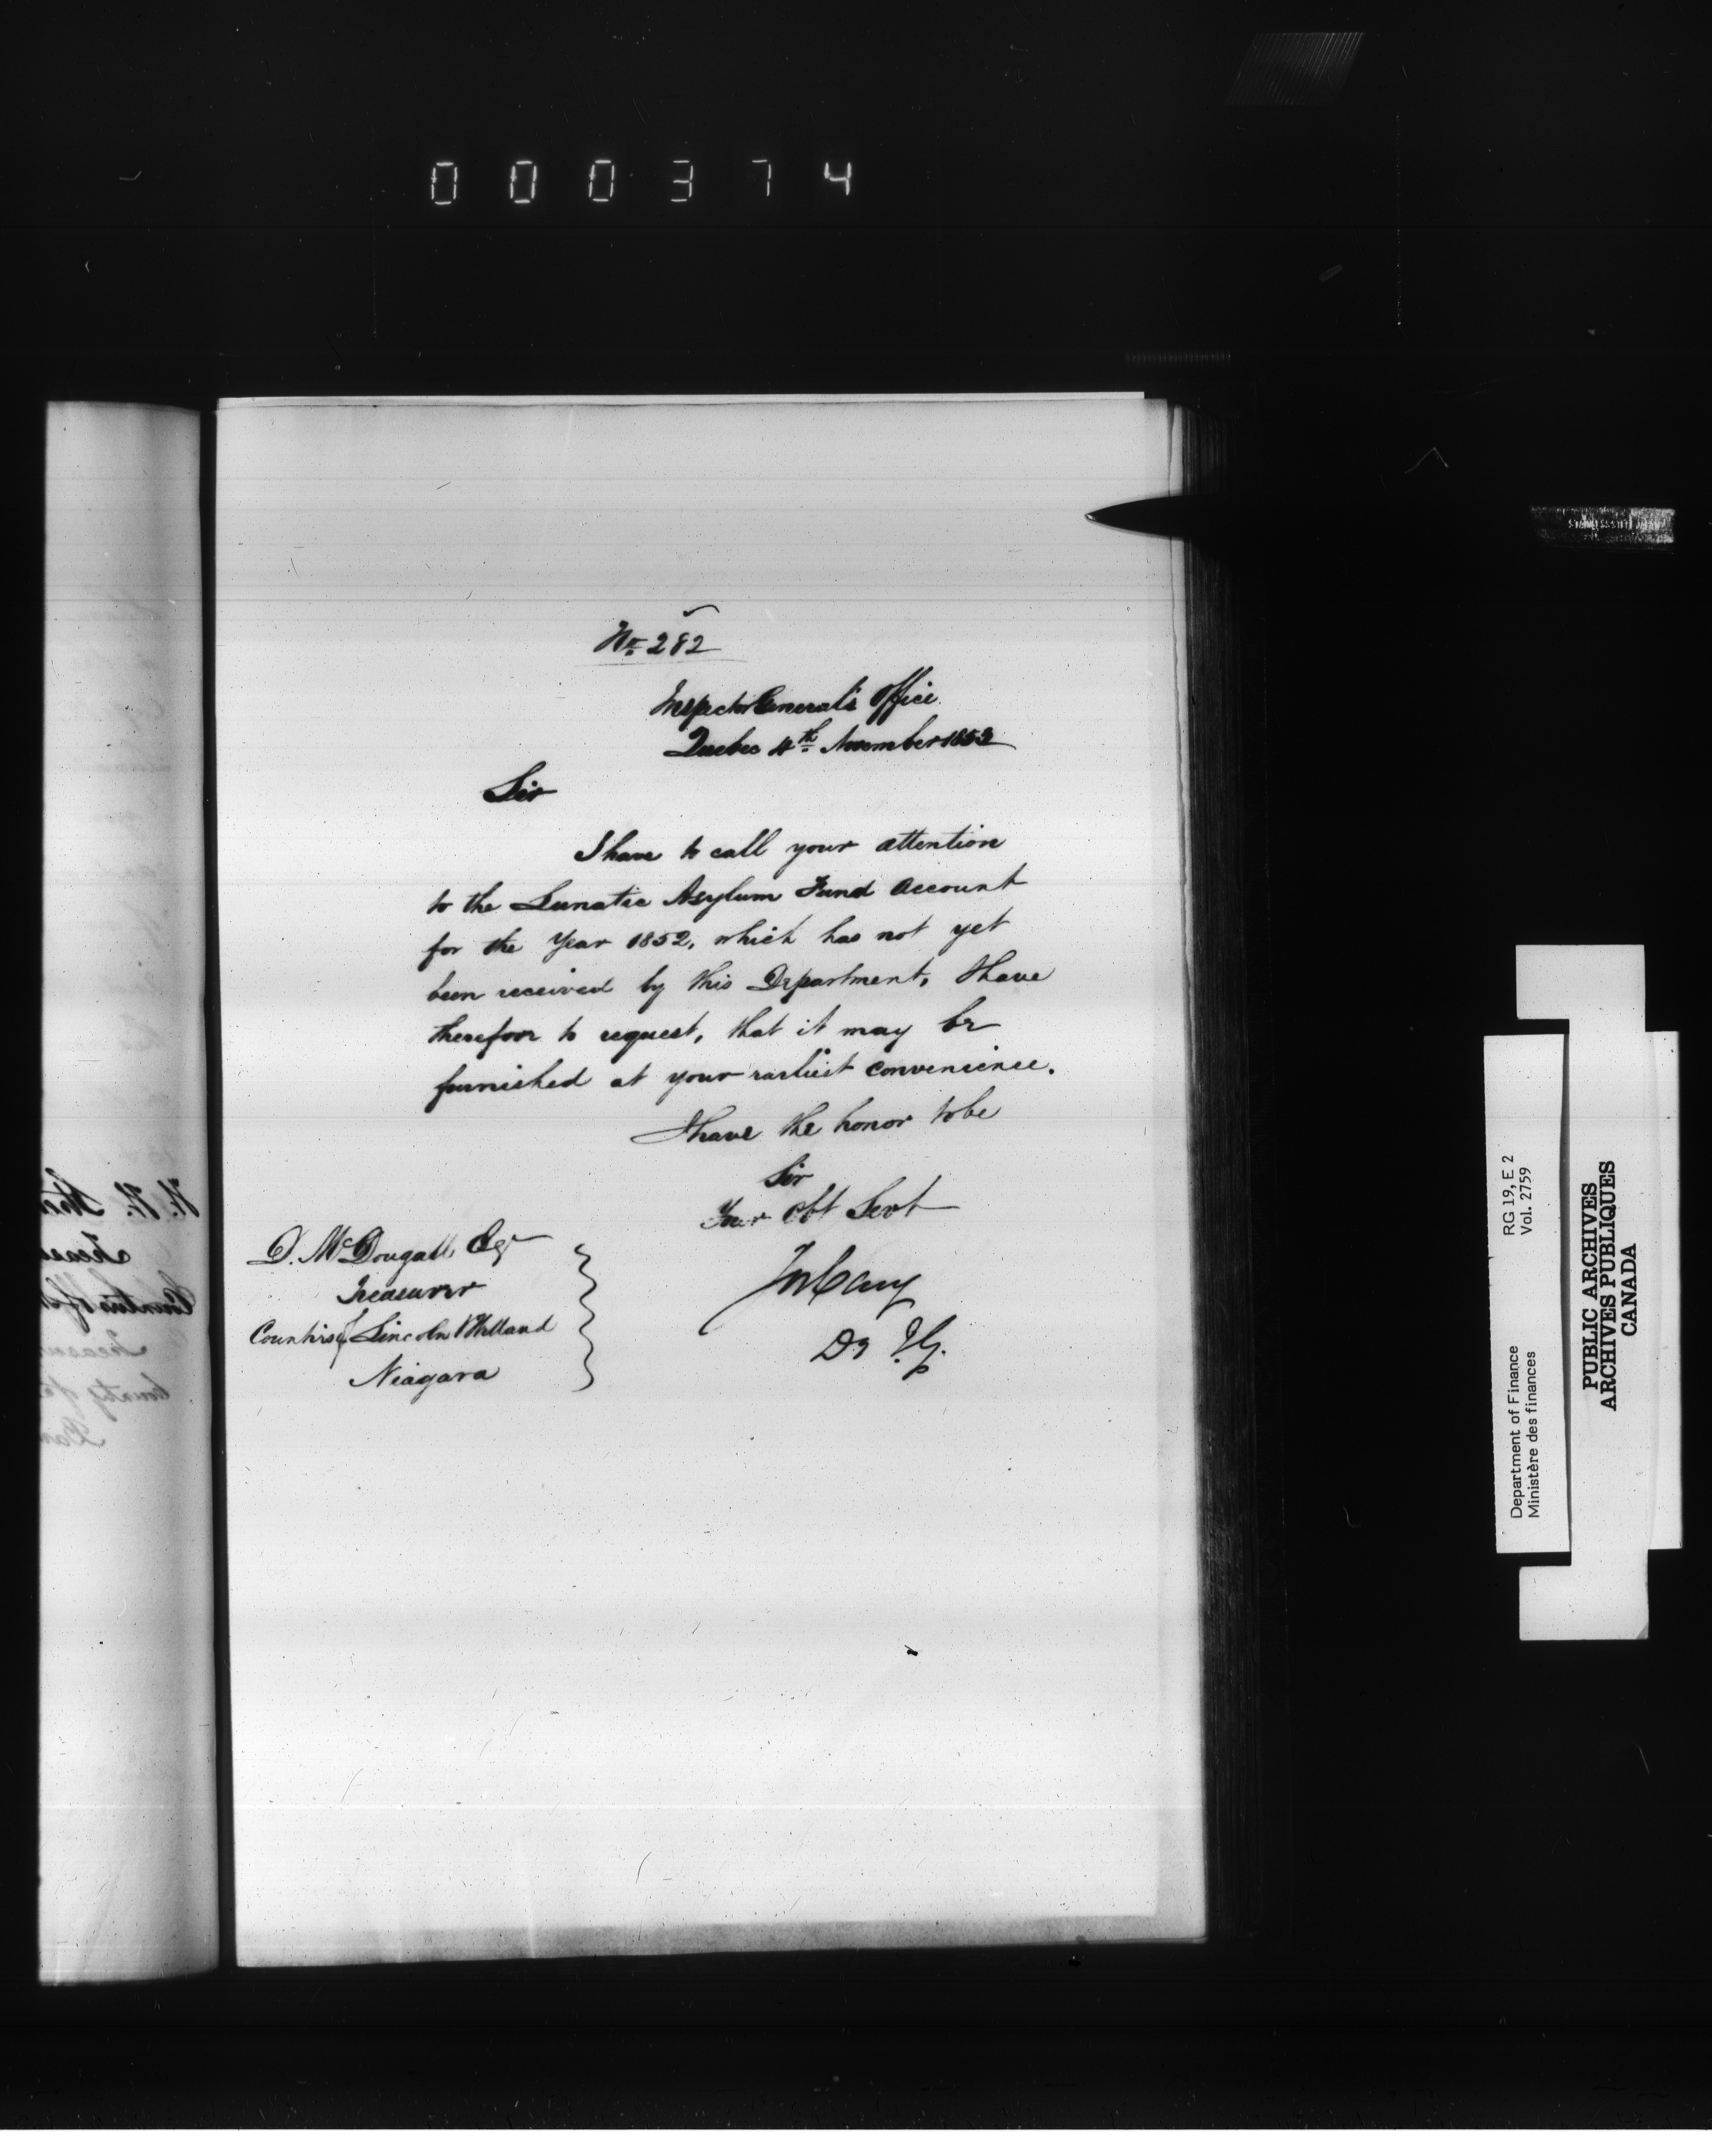 000374
No. 282
Inspector General's Office
Quebec 4th November 1853
Sir
I have to call your attention
to the Lunatic Asylum Fund Account
for the Year 1852, which has not yet
been received by this Department, I have
therefore to request, that it may be
furnished at your earliest convenience.
I have the honor to be
Sir
Your Obt Servt
Jos Cary
D. I. G.
D. McDougall Esqr
Treasurer
Counties of Lincoln & Welland
Niagara
RG 19, E 2
Vol. 2759
Department of Finance
Ministère des finances
PUBLIC ARCHIVES
ARCHIVES PUBLIQUES
CANADA